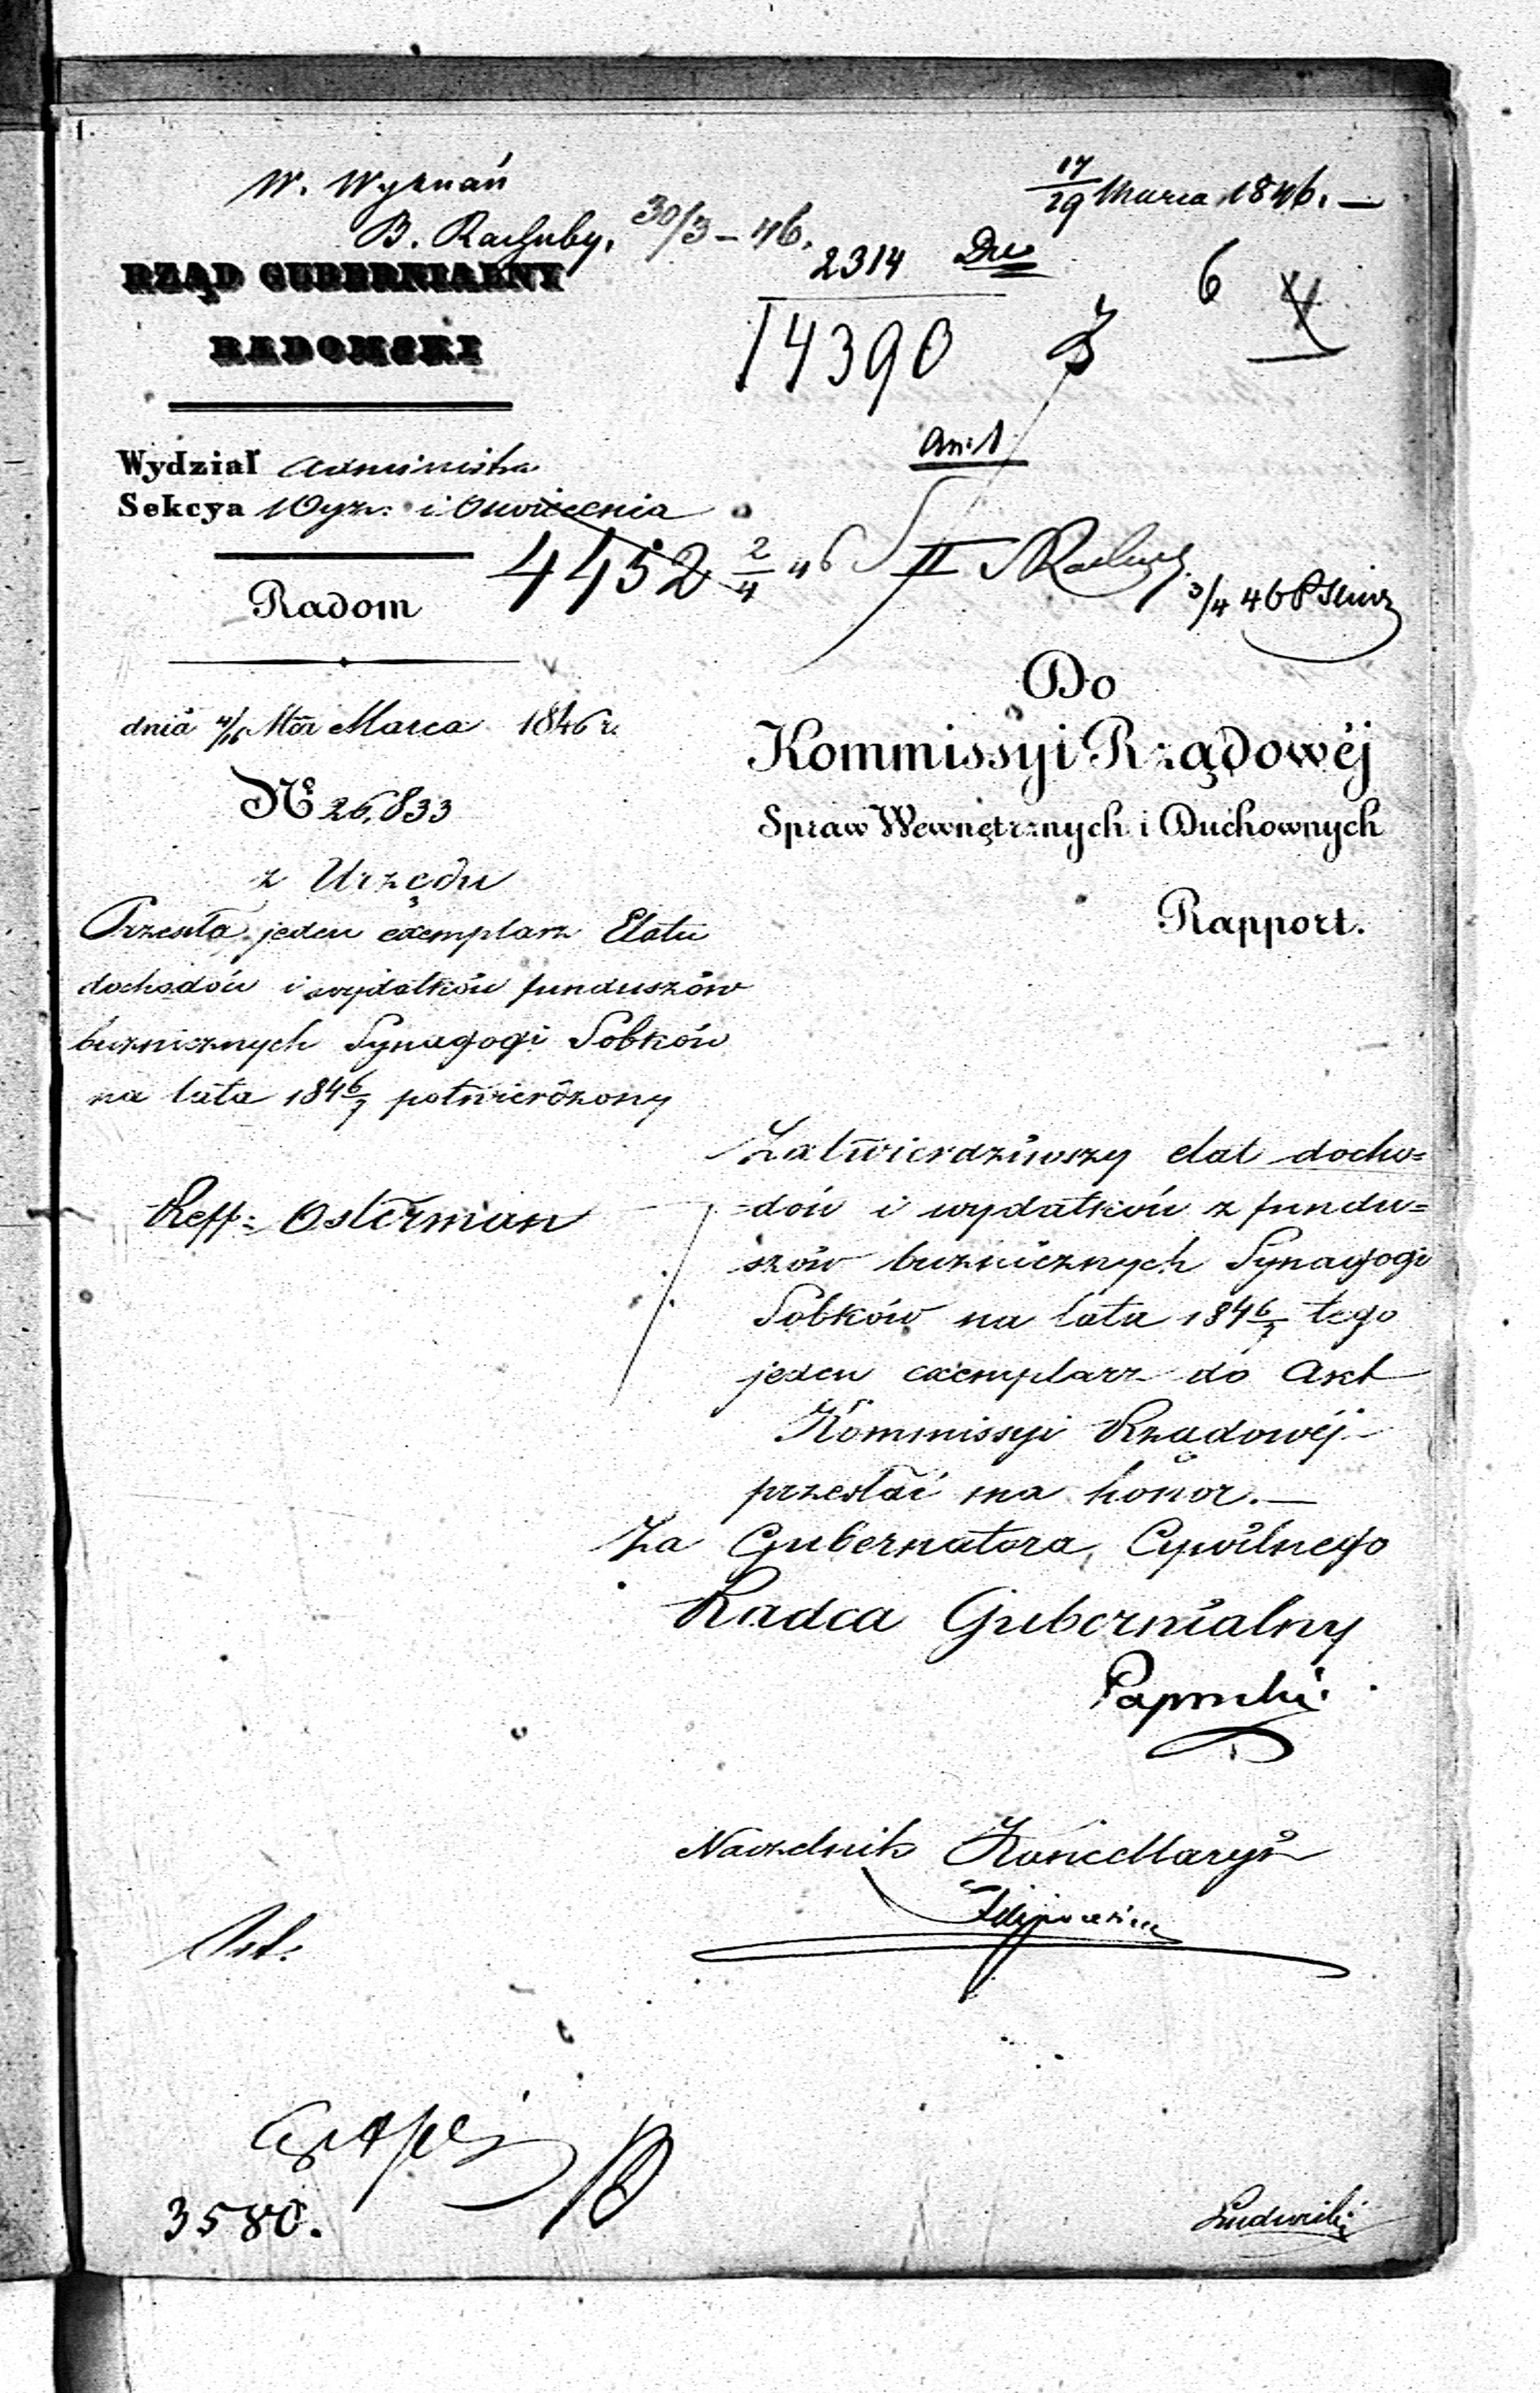 1.
W. Wyznań
B. Rachuby, 30/3 – 46.
17/29 Marca 1846. —
2314 Du
6 4
14390
RZĄD GUBERNIALNY
RADOMSKI
an: 1
Wydział Administra
Sekcya Wyzn: i Oswiecenia
4452 2/4 46 II
3/4 46
Radom
dnia 4/16 Marca 1846 r.
No 26,833
z Urzędu
Przesyła jeden exemplarz Etatu
dochodów i wydatków funduszów
bużnicznych Synagogi Sobków
na lata 1846/7 potwierdzony
Reff: Osterman
Do
Kommissyi Rządowéj
Spraw Wewnętrznych i Duchownych
Rapport.
Zatwierdziwszy etat docho=
=dów i wydatków z fundu=
szów bużnicznych Synagogi
Sobków na lata 1846/7 tego
jeden exemplarz do Akt
Kommissyi Rządowéj
przesłać ma honor. —
Za Gubernatora Cywilnego
Radca Gubernialny
Paprocki
Naczelnik Kancellaryi
3580.